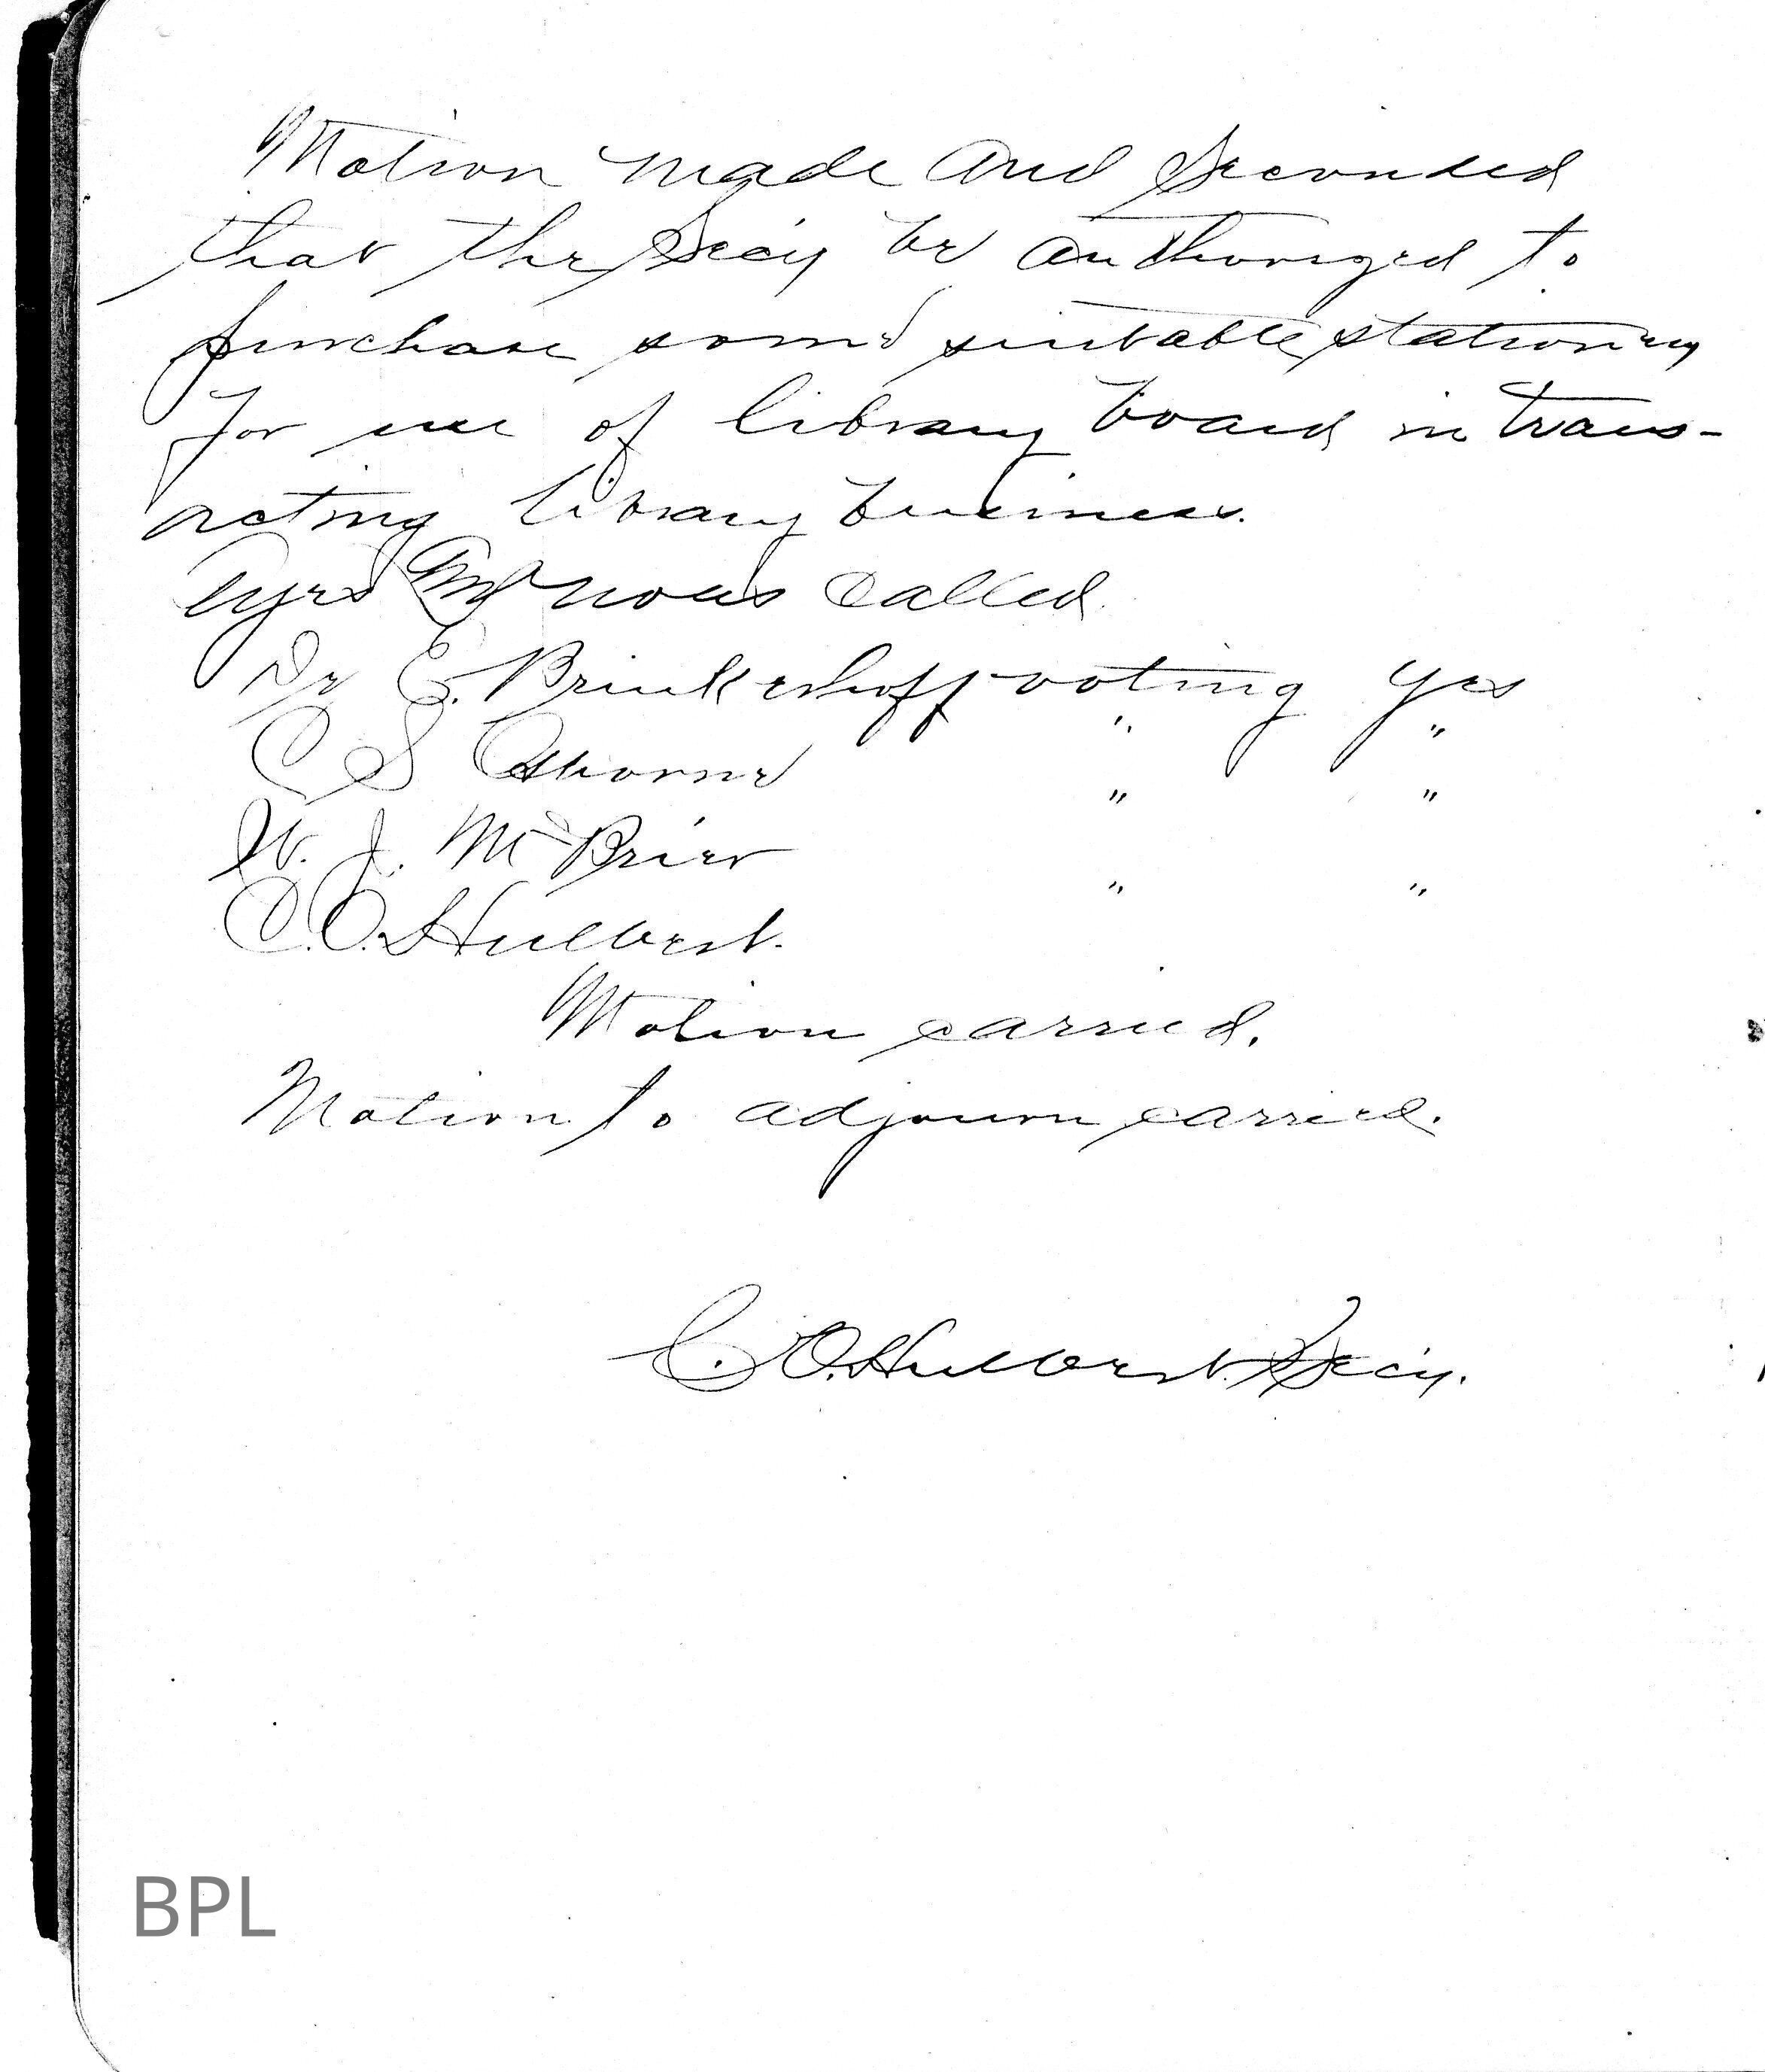 Motion made and seconded
that the Sec'y be authorized to
purchase some suitable stationery
for use of library board in trans-
acting library business.
Ayes and noes called.
Dr E. Brinkerhoff voting yes
C S Osborne " "
W. J. McBrier " "
C. O. Hulbert. " "
Motion carried.
Motion to adjourn carried.
C. O. Hulbert. Sec'y.
BPL